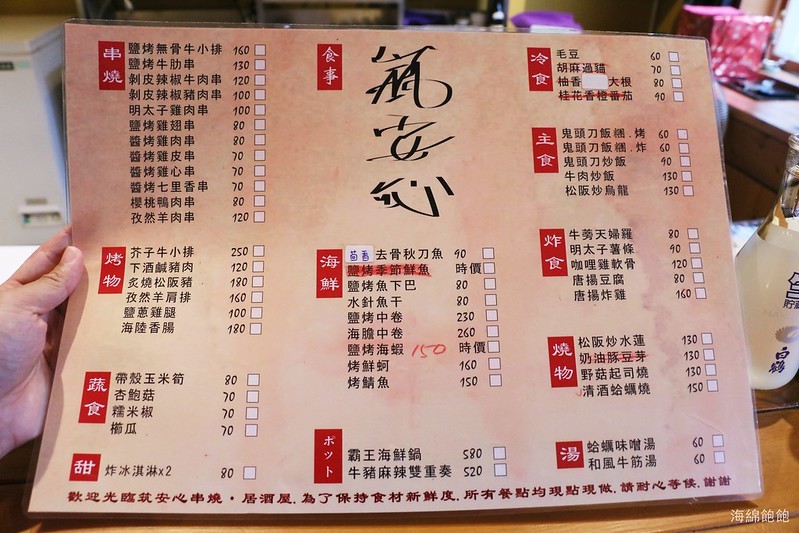 串燒
鹽烤無骨牛小排 160
鹽烤牛肋串 130
剝皮辣椒牛肉串 120
剝皮辣椒豬肉串 100
明太子雞肉串 100
鹽烤雞翅串 80
醬烤雞肉串 80
醬烤雞皮串 70
醬烤雞心串 70
醬烤七里香串 70
櫻桃鴨肉串 80
孜然羊肉串 120
烤物
芥子牛小排 250
下酒鹹豬肉 120
炙燒松阪豬 180
孜然羊肩排 160
鹽蔥雞腿 100
海陸香腸 180
蔬食
帶殼玉米筍 80
杏鮑菇 70
糯米椒 70
櫛瓜 70
甜
炸冰淇淋x2 80
食事
筑安心
海鮮
去骨秋刀魚 90
鹽烤季節鮮魚 時價
鹽烤魚下巴 80
水針魚干 80
鹽烤中卷 230
海膽中卷 260
鹽烤海蝦 150 時價
烤鮮蚵 160
烤鯖魚 150
ポット
霸王海鮮鍋 580
牛豬麻辣雙重奏 520
冷食
毛豆 60
胡麻過貓 70
柚香 大根 80
桂花香橙番茄 90
主食
鬼頭刀飯糰.烤 60
鬼頭刀飯糰.炸 60
鬼頭刀炒飯 90
牛肉炒飯 130
松阪炒烏龍 130
炸食
牛蒡天婦羅 80
明太子薯條 90
咖哩雞軟骨 120
唐揚豆腐 80
唐揚炸雞 160
燒物
松阪炒水蓮 130
奶油豚豆芽 130
野菇起司燒 130
清酒蛤蠣燒 150
湯
蛤蠣味噌湯 60
和風牛筋湯 60
歡迎光臨筑安心串燒・居酒屋.為了保持食材新鮮度.所有餐點均現點現做.請耐心等候.謝謝
白鶴
海綿飽飽